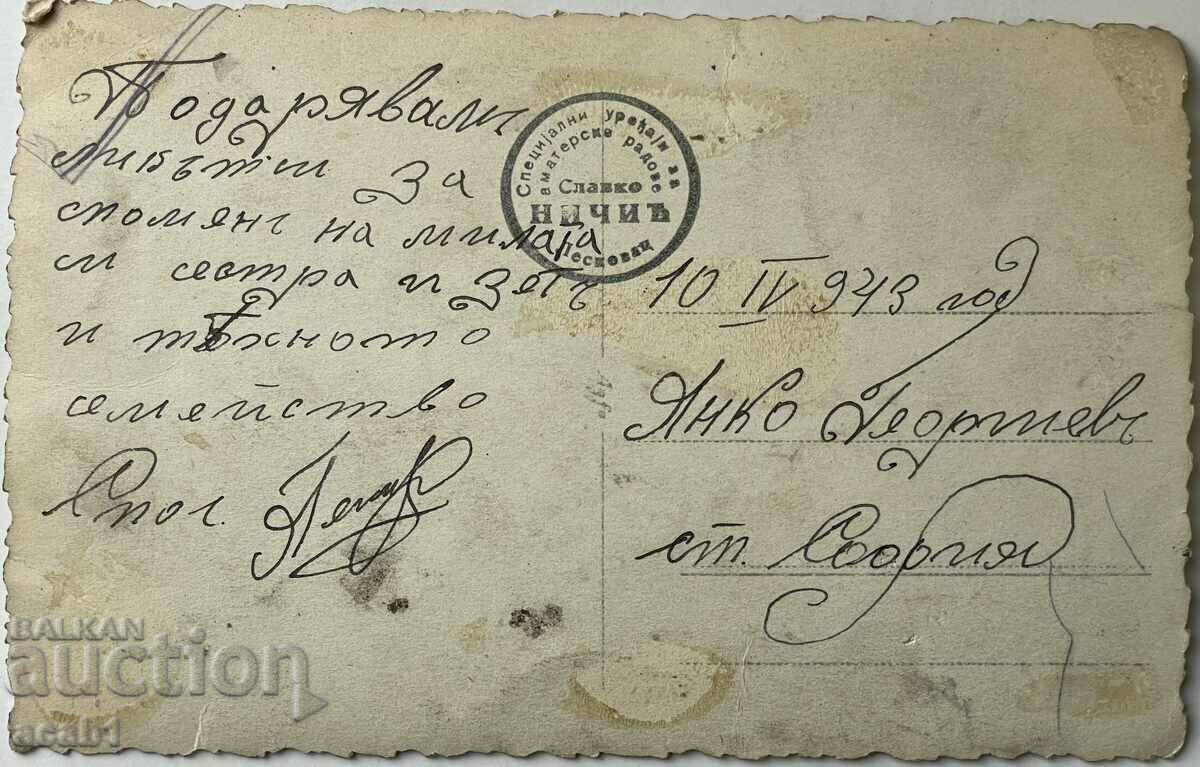 Подарявамъ
ликътъ си за
споменъ на милата
ми сестра и зетъ
и тѣхното
семейство
Спог. Петър
Специјални уређаји за
аматерске радове
Славко
НИЧИЋ
Лесковац
10 IV 943 год
Янко Георгиевъ
ст. София
BALKAN
auction
acab1